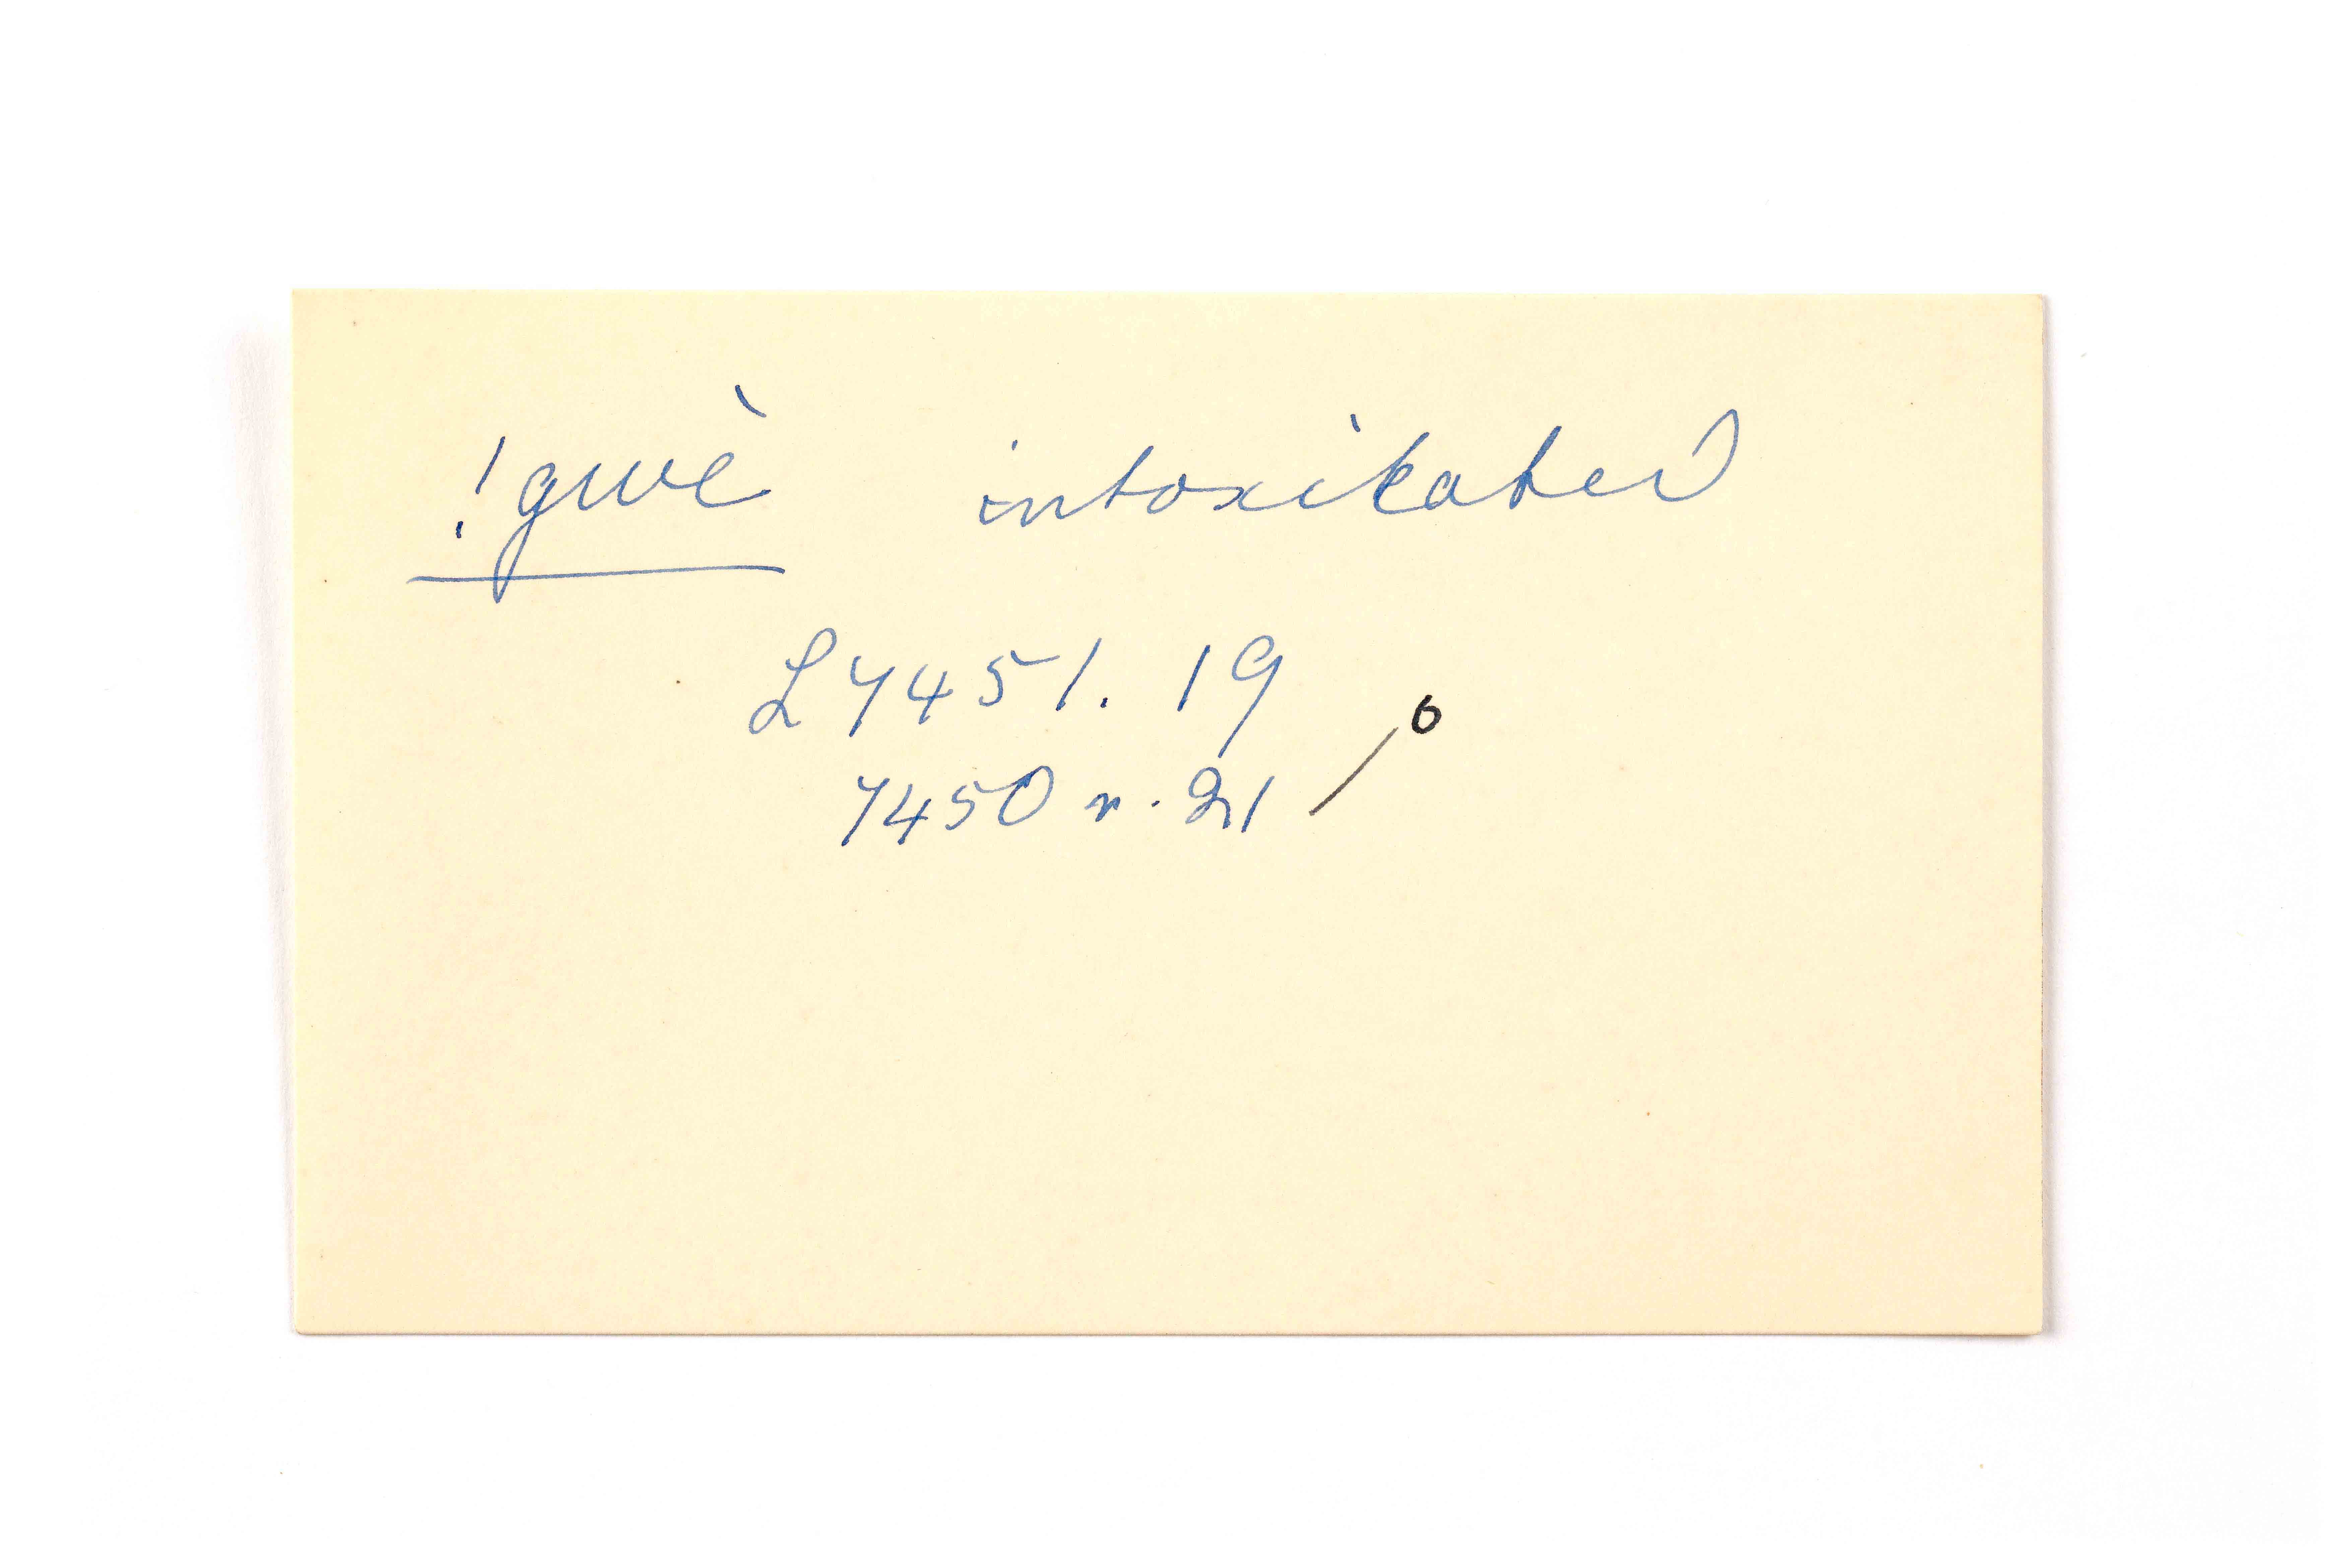 !gwè intoxikated
L7451. 19
7450 r. 21 / 6